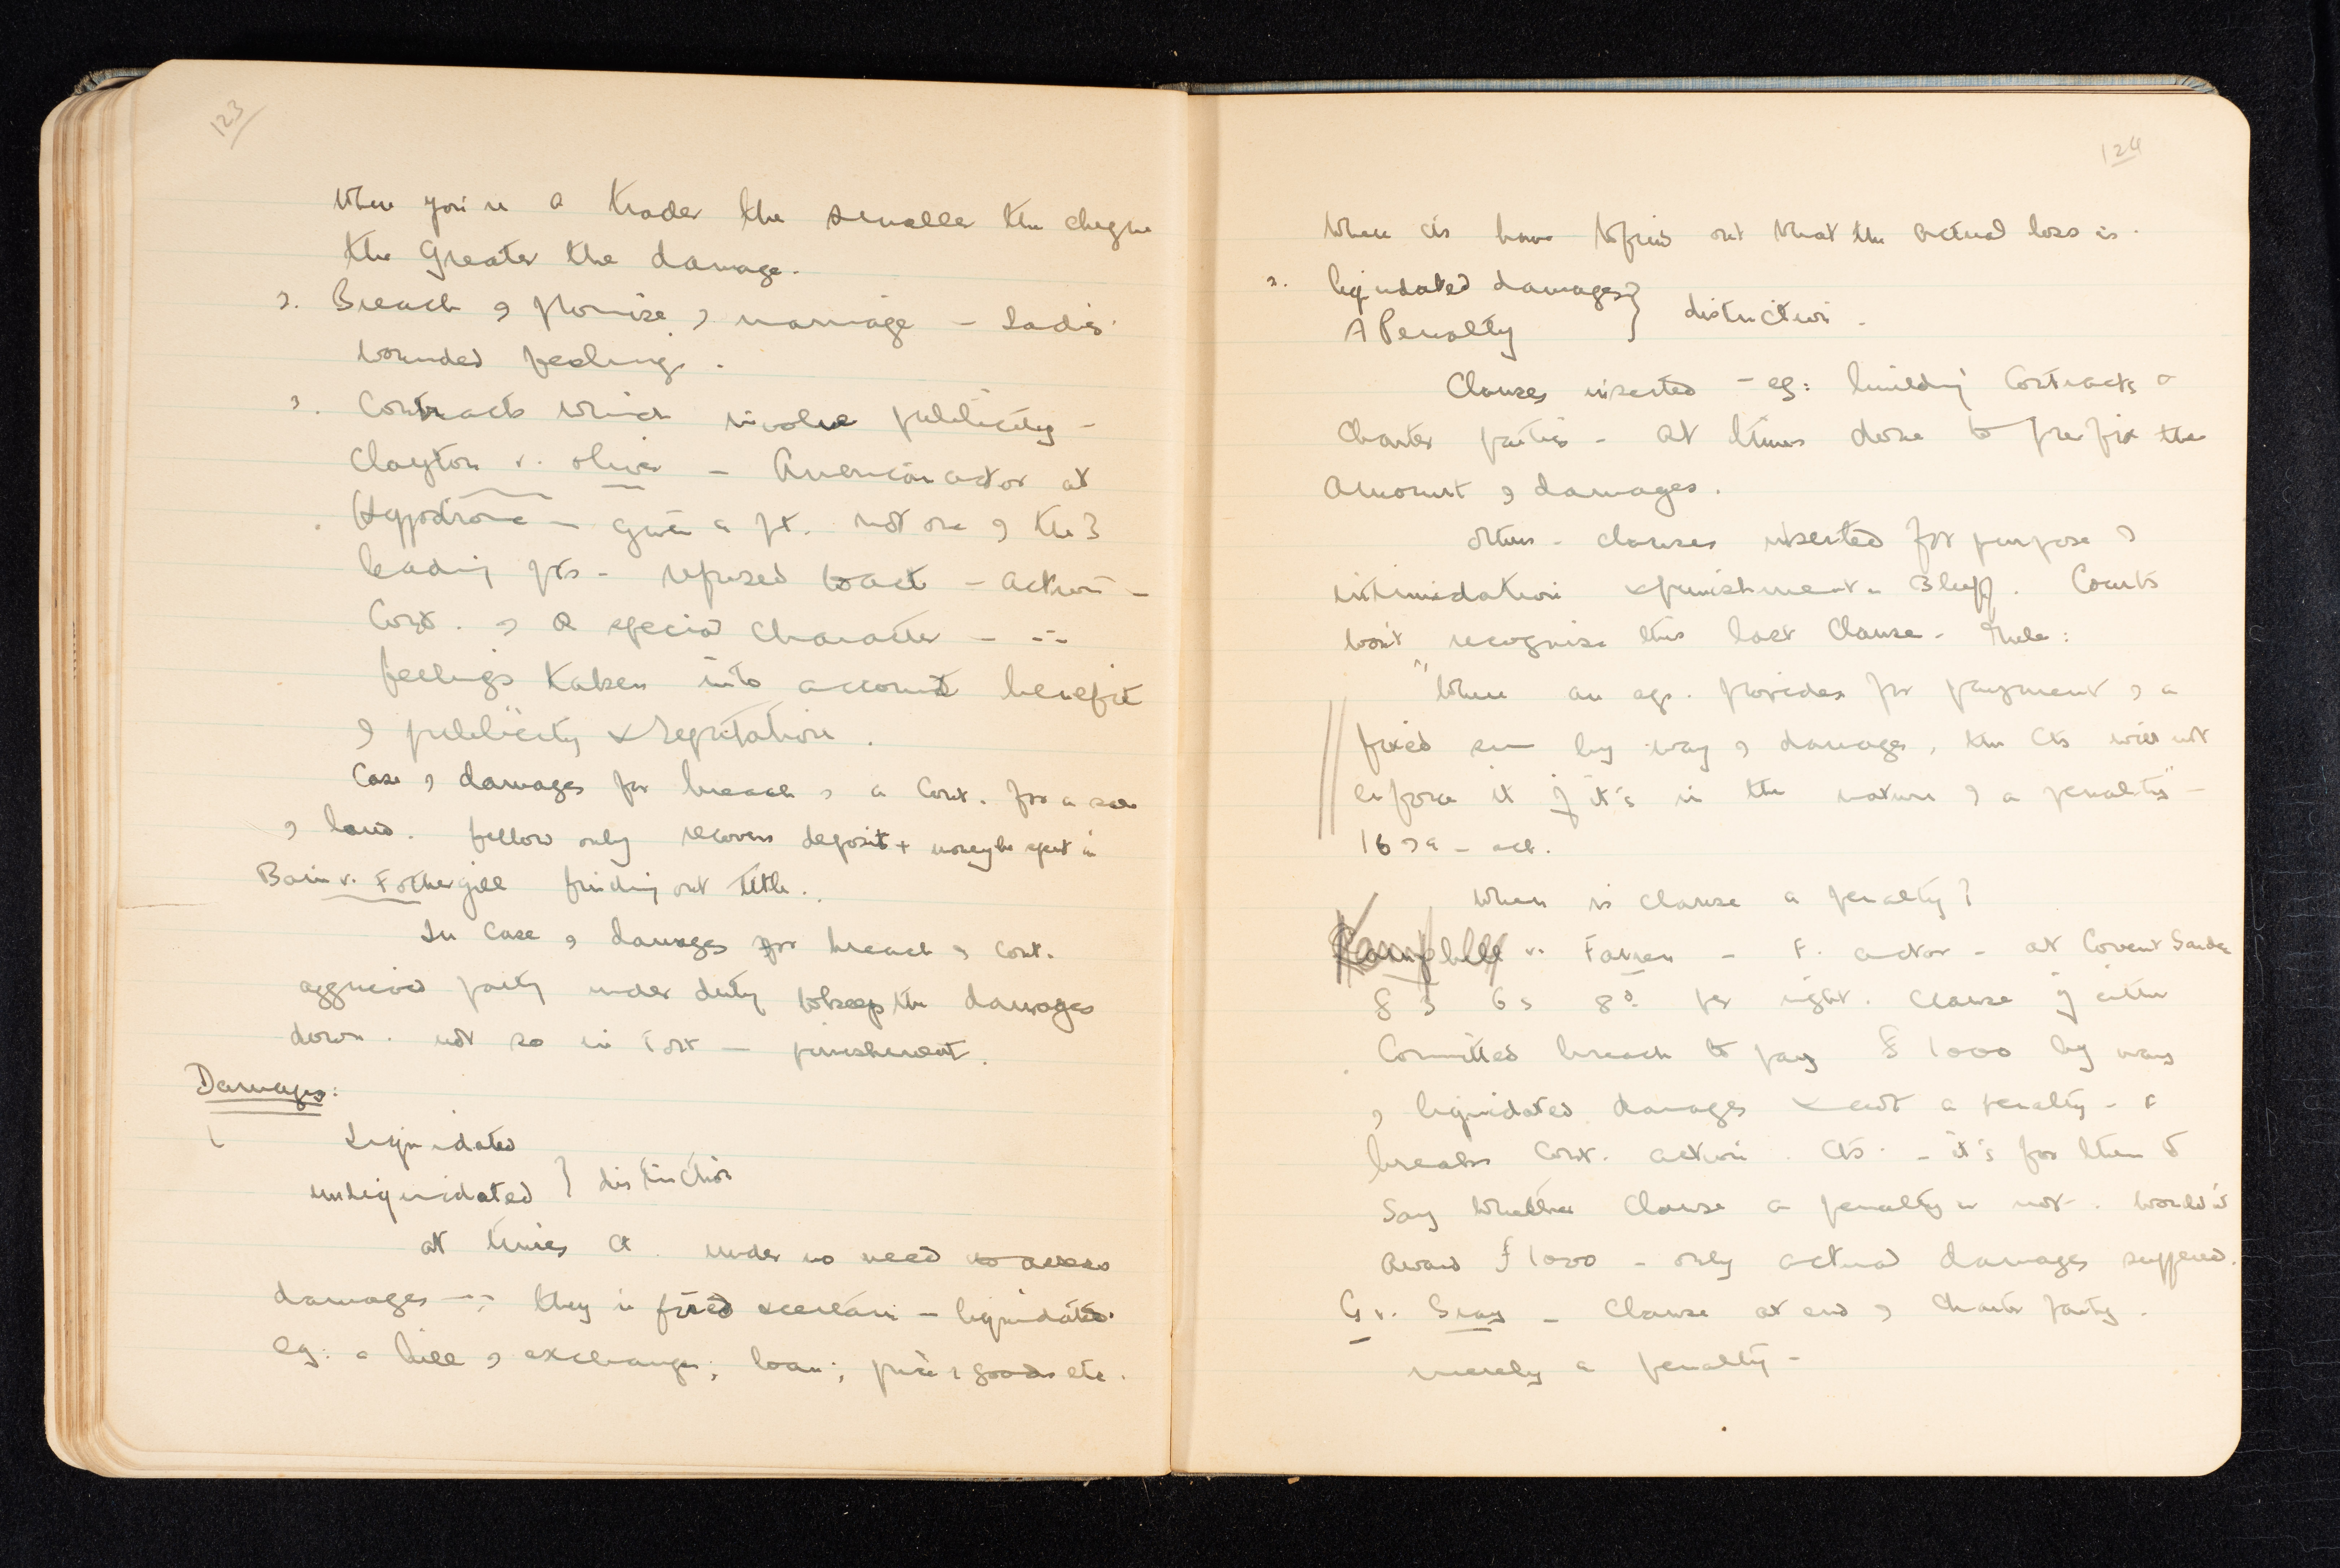 123
When you're a trader the smaller the cheque
the Greater the damage.
2. Breach of promise of marriage - Ladies'
wounded feelings.
3. Contracts which involve publicity -
Clayton v. Oliver - American actor at
Hyppodrome - given a pt. not one of the 3
leading pts - refused to act - action -
Cont. of a special character - ∴
feelings taken into account benefit
of publicity & reputation.
Case of damages for breach of a Cont. for a sale
of land. fellow only recovers deposit + money he spent in
Bain v. Fothergill finding out title.
In Case of damages for breach of cont.
aggrieved party under duty to keep the damages
down. not so in Tort - punishment.
Damages:
1 Liquidated
unliquidated } distinction
at times Ct. under no need to assess
damages - ∵ they're fixed & certain - liquidated.
eg: a bill of exchange; loan; price of goods etc.
124
Where cts have to find out what the actual loss is.
2. liquidated damages }
A Penalty } distinction.
Clauses inserted - eg: building Contracts or
Charter parties - at times done to prefix the
Amount of damages.
others - clauses inserted for purpose of
intimidation & punishment - Bluff. Courts
won't recognise this last Clause. Rule:
"Where an agr. provides for payment of a
fixed sum by way of damages, the Cts will not
enforce it if it's in the nature of a penalty" -
act.
When is clause a penalty?
v. Farren - F. actor - at Covent Garden
£ 3 6s 8d per night. Clause if either
Committed breach to pay £1000 by way
of liquidated damages & not a penalty - F
breaks Cont. action. Cts. - it's for them to
Say whether Clause a penalty or not. Wouldn't
Award £1000 - only actual damages suffered.
G v. Gray - Clause at end of Charter party.
merely a penalty -